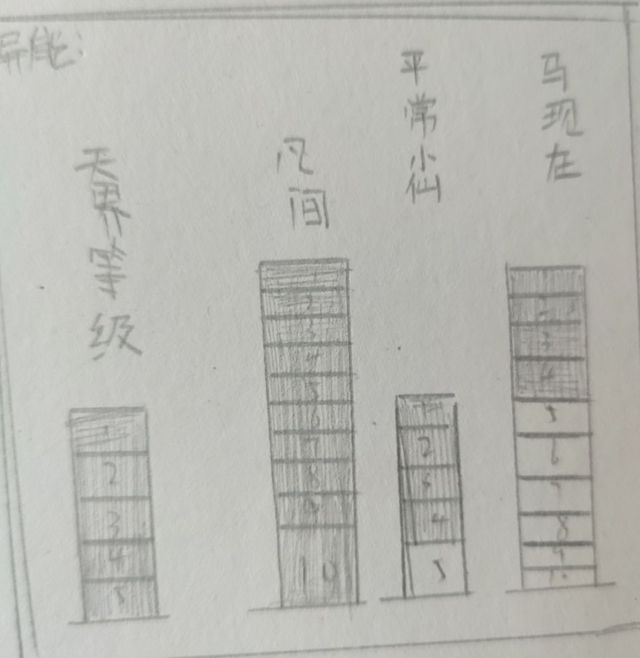 异能:
天界等级
1
2
3
4
5
凡间
1
2
3
4
5
6
7
8
9
10
平常小仙
1
2
3
4
5
马现在
2
3
4
5
6
7
8
9
10